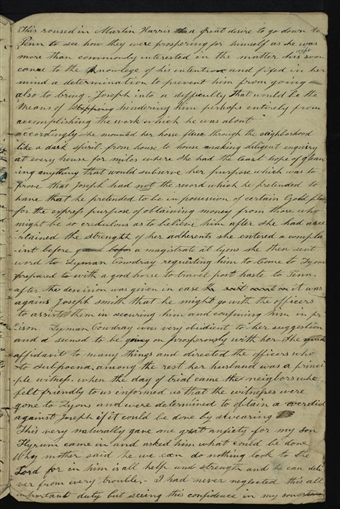 This roused in Martin Harris a great desire to go down to
Penn to see how they were prospering for himself as he was
more than commonly interested in the matter his
came to the knowlege of his intention and fixed in her
mind a determination to prevent him from going
also to bring Joseph into a difficulty that would be the
means of hindering him perhaps entirely from
accomplishing the work which he was about
accordingly she mounted her horse flew through the neighborhood
like a dark spirit from house to house making diligent inquiry
at every house for miles where she had the least hope of glean
ing anything that would subserve her purpose which was to
prove that Joseph had not the record which he pretended to
have that he pretended to be in possession of certain Gold plates
for the express purpose of obtaining money from those who
might be so credulous as to believe him after she had asce
rtained the strength of her adherents she entered a compla
int before a magistrate at Lyons she then sent
word to Lyman Cowdray requiring him to come to Lyons
prepared with a good horse to travel post haste to Penn.
after the decision was given in case it was
against Joseph smith that he might go with the officers
to arrest him in securing him and confining him in pr
ison Lyman Cowdray was very obedient to her suggestion
and all seemed to be going on prosperously with her. She
affidavit to many things and directed the officers who
to subpoena. among the rest her husband was a princi
ple witness. when the day of trial came the neigbors who
felt friendly to us informed us that the witnesses were
gone to Lyons and were determined to obtain a verdict
against Joseph if it could be done by swearing
This very naturally gave me great anxiety for my son
Hyrum came in and asked him what could be done
Why mother said he we can do nothing look to the
Lord for in him is all help and strength and he can deli
ver from every trouble. I had never neglected this all
important duty but seeing this confidence in my son